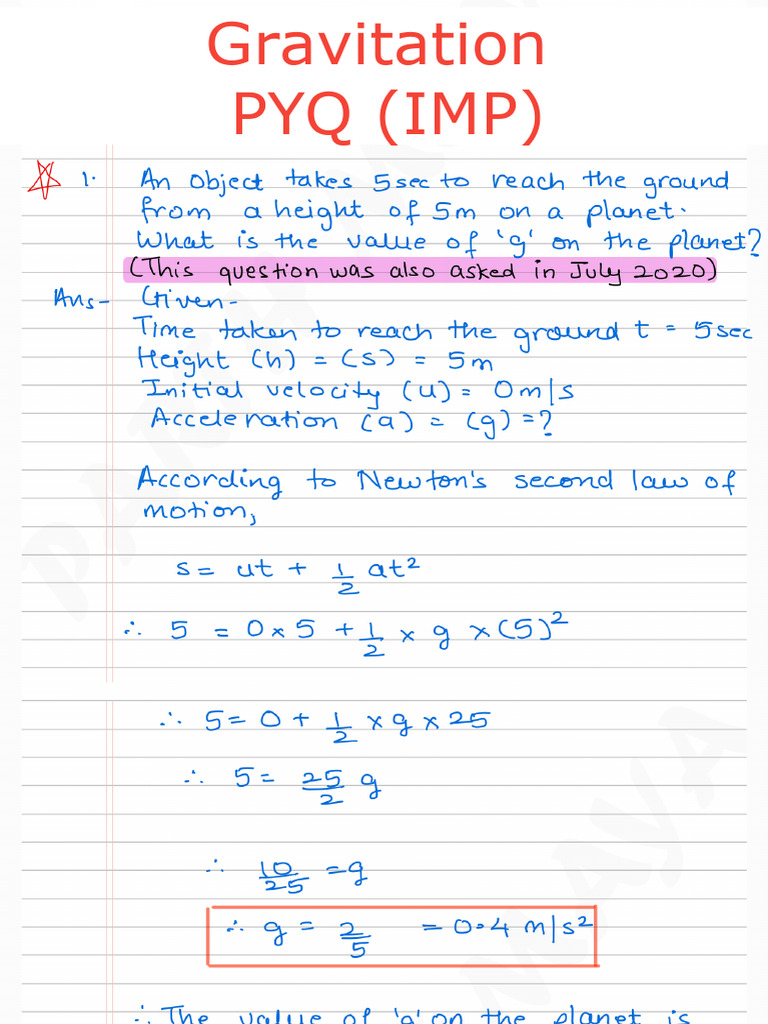 Gravitation
PYQ (IMP)
1. An object takes 5sec to reach the ground
from a height of 5m on a planet.
What is the value of 'g' on the planet?
(This question was also asked in July 2020)
Ans- Given-
Time taken to reach the ground t = 5sec
Height (h) = (s) = 5m
Initial velocity (u) = 0m/s
Acceleration (a) = (g) = ?
According to Newton's second law of
motion,
s = ut + 1/2 at²
∴ 5 = 0 × 5 + 1/2 × g × (5)²
∴ 5 = 0 + 1/2 × g × 25
∴ 5 = 25/2 g
∴ 10/25 = g
∴ g = 2/5 = 0.4 m/s²
∴ The value of 'g' on the planet is